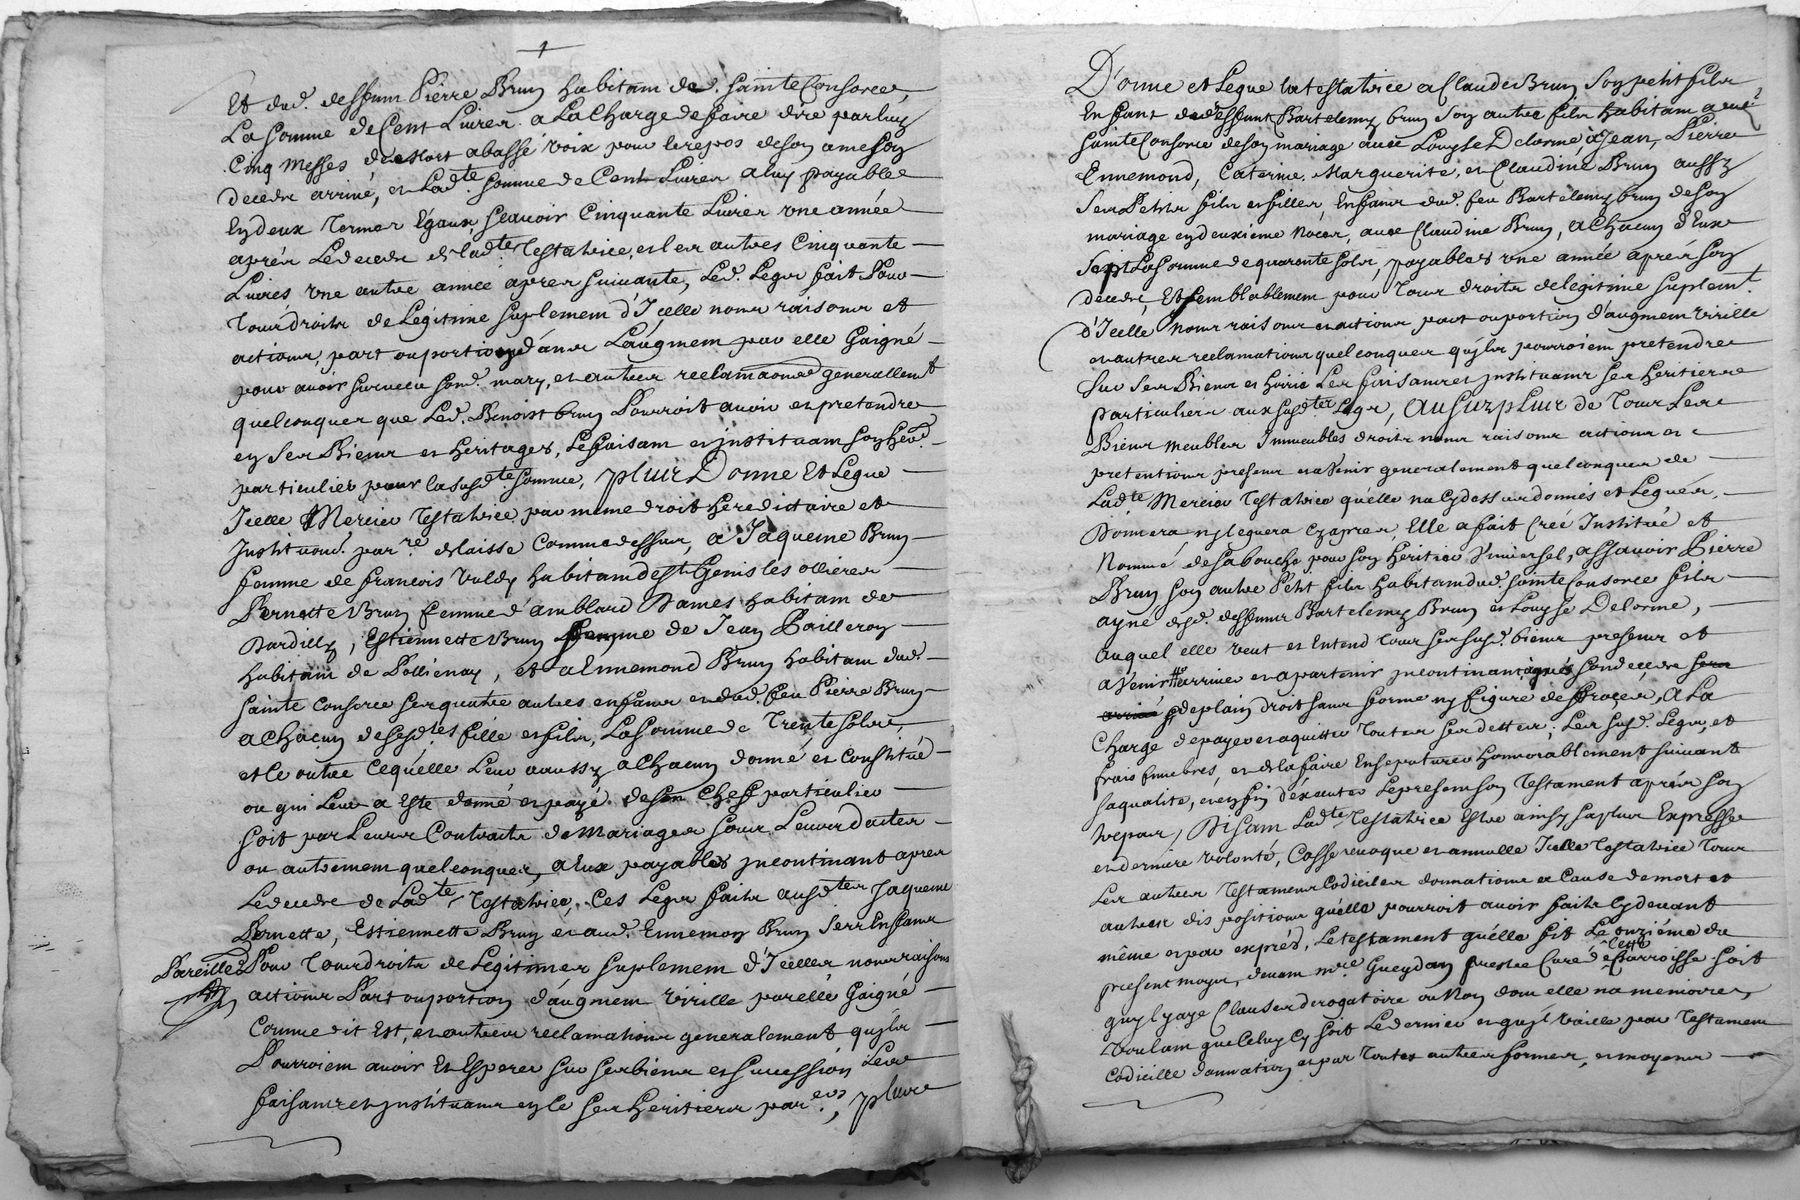 Et dud. deffunt Pierre Brun habitant de d. Sainte Consorce,
La somme de Cent Livres a La Charge de faire dire par luy
Cinq Messes de Mort a basse voix pour le repos de son ame son
deceds arrivé, et Lad.te somme de Cent Livres a luy payable
En deux Termes Egaux sçavoir Cinquante Livres vne année
après Le deceds de Lad.te Testatrice, et les autres Cinquante
Livres vne autre année apres suivante, Led. Legat fait Pour
Tous droits de Legitime suplement d'Icelle noms raisons et
actions, part ou portion d'ans L'augment par elle Gaigné
pour avoir survecu sond. mary, et autres reclamaons generallem.t
quelconques que Led. Benoist brun Pourroit avoir et pretendre
en ses Biens et heritages, Le faisant et jnstituant son her.
particulier pour la susd.te somme, plus Donne Et Legue
Icelle Mercier Testatrice par meme droit hereditaire et
Institução par.re delaisse Comme dessus, a Jaqueme Brun
femme de francois Valdy habitant de S.t Genis les ollieres
Pernette Brun femme d'amblard Dames habitant de
Dardilly, Estiennette Brun femme de Jean Pailleron
habitant de Pollienay, et a Ennemond Brun habitant dud.
Sainte Consorce ses quatre autres enfans et dud. feu Pierre Brun
a Chacun de sesd.tes fille et fils, La somme de Trente sols,
et Ce outre Ce qu'elle Leur a aussy a Chacun donné et Constitué
ou qui Leur a Este donné et payé de son Chef particulier
soit par Leurs Contraits de Mariages sous Leurs dattes
ou autrement quelconques, a Eux payables jncontinant apres
Le deceds de Lad.te Testatrice, Ces Legats faits ausd.tes Jaqueme
Pernette, Estiennette Brun et aud. Ennemon Brun ses Enfans
Pareilles Pour Tous droits de Legitimes suplement d'Icelles noms raisons
actions Part ou portion d'augment virille par elle Gaigné
Comme dit Est, et autres reclamations generalement qu'jls
Pourroient avoir Et Esperer sur ses biens et succession Les
faisants et jnstituans en ce ses heritiers par.ers, plus
Donne et Legue la testatrice a Claude Brun son petit fils
Enfant de deffunt Bartelemy brun son autre fils habitant aud.
Sainte Consorce de son mariage avec Louyse Delorme a Jean, Pierre
Ennemond, Caterine, Marguerite, et Claudine Brun aussy
ses Petits fils et filles, Enfans dud. feu Bartelemy brun de son
mariage en deuxieme Noces, avec Claudine Brun, a Chacun d'Eux
Sept La somme de quarante sols, payables vne année aprés son
deceds, Et semblablement pour Tous droits de legitime suplem.t
d'Icelle Noms raisons et actions part ou portion d'augment virille
et autres reclamations quelconques qu'jls pourroient pretendre
sur ses Biens et hoirie Les faisants et jnstituans ses heritiers
particuliers aux susd.tes Legats, Au surplus de Tous Les
Biens meubles Immeubles droits noms raisons actions et
pretentions presens et a Venir generalement quelconques de
Lad.te Mercier Testatrice qu'elle n'a Cy dessus donnés et Legués,
Donnera ny leguera Cy aprés, Elle a fait Créé Institué et
Nommé de sa bouche pour son heritier Vniversel, assavoir Pierre
Brun son autre Petit fils habitant dud. Sainte Consorce fils
ayné desd. deffunts Bartelemy Brun et Louyse Delorme,
auquel elle veut et Entend Tous ses susd. biens presens et
a Venir arriver et apartenir jncontinant aprés son deceds
de plain droit sans forme ny figure de Procés, A La
Charge de payer et aquitter Toutes ses dettes, Les susd. Legats, et
frais funebres, et de la faire Ensepulturer honnorablement suivant
sa qualité, et en fin d'éxecuter Le present son Testament aprés son
trepas, Disant Lad.te Testatrice Estre ainsy sa plus Expresse
et derniere volonté, Casse revoque et annulle Icelle Testatrice Tous
Les autres Testamens Codiciles donnations a Cause de mort et
autres dispositions qu'elle pourroit avoir faits Cy devant
même et par exprés, Le testament qu'elle fit Le onziéme du
present moys, devant m.re Gueydan prestre Curé de Cette Parroisse soit
qu'jl y aye Clauses derogatoire ou Non dont elle n'a memoire,
Voulant que Celuy Cy soit Le dernier et qu'jl vaille par Testament
Codicille donnation et par Toutes autres formes, et moyens